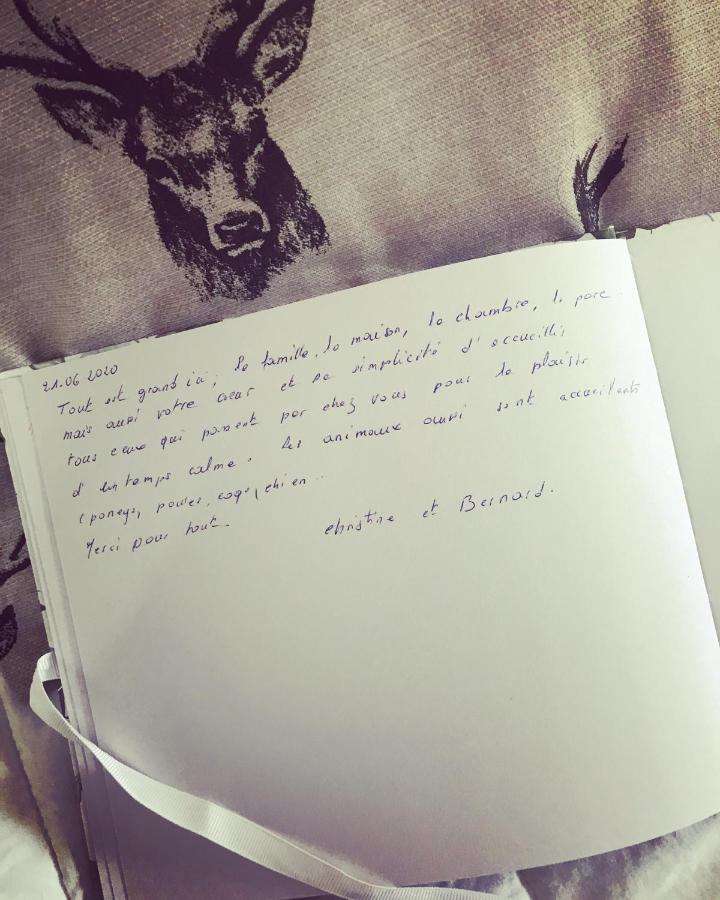 21.06 2020
Tout est grand ici ; la famille, la maison, la chambre, le parc
mais aussi votre cœur et sa simplicité d'accueillir
tous ceux qui passent par chez vous pour le plaisir
d'un temps calme. Les animaux aussi sont accueillants
(poneys, poules, coqs, chien...
Merci pour tout. Christine et Bernard.